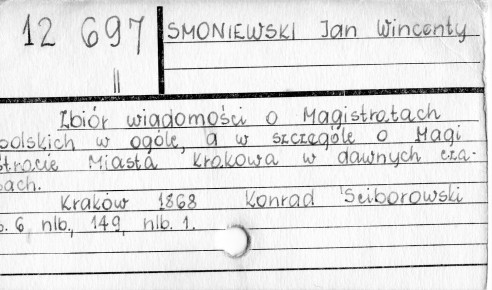 12 697
||
SMONIEWSKI Jan Wincenty
Zbiór wiadomości o Magistratach
polskich w ogóle, a w szczególe o Magi
stracie Miasta Krakowa w dawnych cza-
sach.
Kraków 1868 Konrad Sciborowski
s. 6 nlb., 149, nlb. 1.